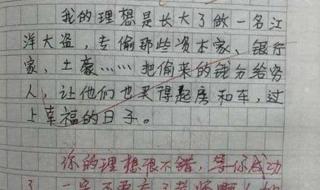 我的理想是长大了做一名江
洋大盗,专偷那些资本家、银行
家、土豪……把偷来的钱分给穷
人,让他们也买得起房和车,过
上幸福的日子。
你的理想很不错,等你成功
了一定不要忘了